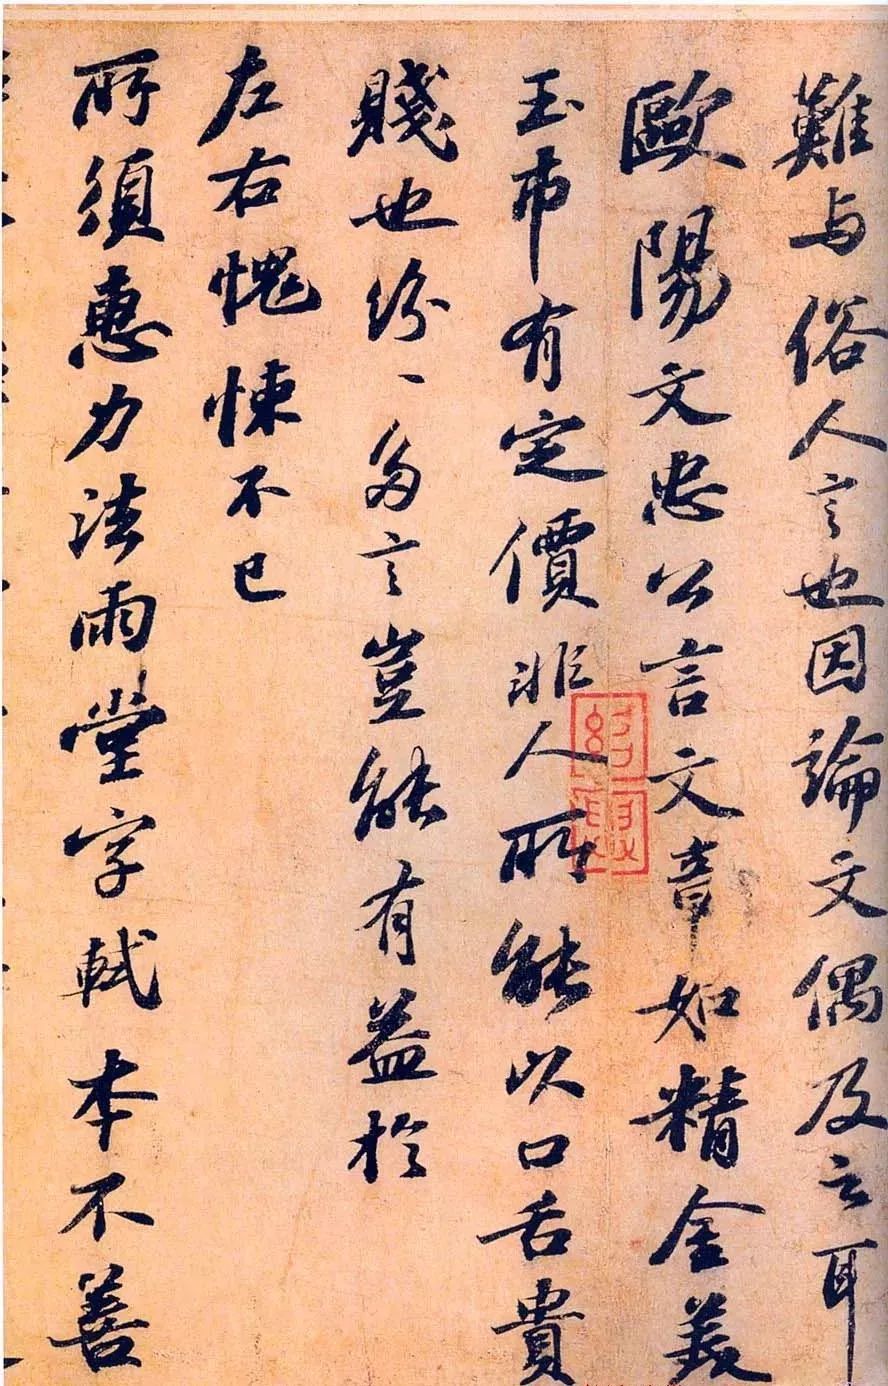 難与俗人言也因論文偶及之耳
歐陽文忠公言文章如精金美
玉市有定價非人所能以口舌貴
賤也紛〻多言豈能有益於
左右愧悚不已
所須惠力法雨堂字軾本不善